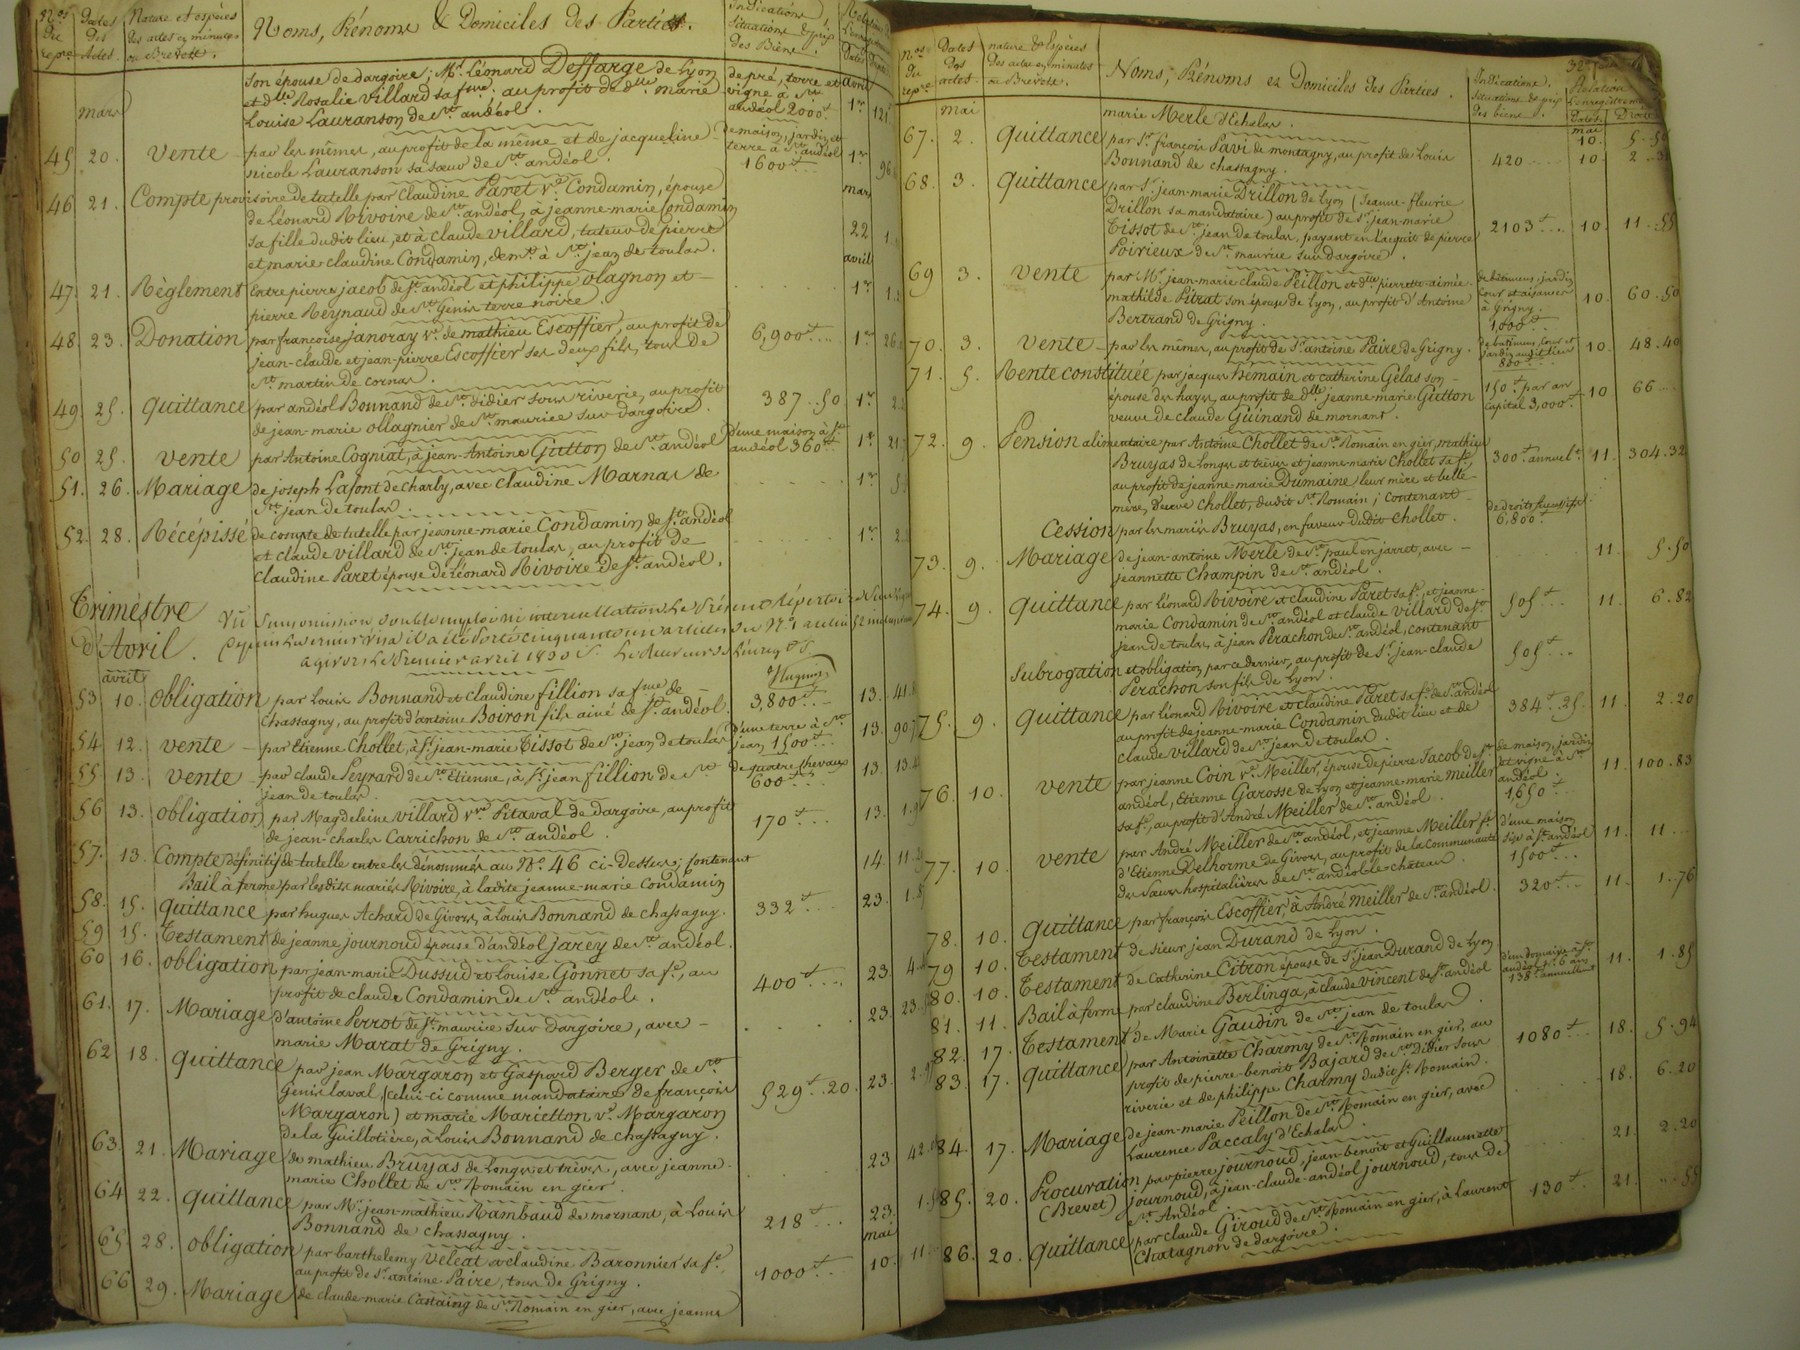 Nos du repre
Dates des Actes.
Nature et espèces des actes en minutes ou Brevets.
Noms, Prénoms & Domiciles des Parties.
Indications, Situations & prix des Biens.
mars
son épouse de dargoire; Mr. Léonard Deffarge de Lyon
et dlle Rosalie Villard sa fme. au profit de dlle marie
Louise Lauranson de St. andéol.
de pré, terre et
vigne à St.
andéol 2000 ₶
avril
1er
45 20. Vente par les mêmes, au profit de la même et de jacqueline
nicole Lauranson sa sœur de St. andéol.
de maison, jardin et
terre à St. andéol
1600 ₶ 1er 96
46 21. Compte provisoire de tutelle par Claudine Paret ve. Condamin, épouse
de Léonard Rivoire de St. andéol, à jeanne-marie Condamin
sa fille dudit lieu, et à Claude Villard, tuteur de pierre
et marie-claudine Condamin, demt. à St. jean de toulas.
mars
22
47. 21. Règlement Entre pierre jacob de St. andéol et philippe Olagnon et
pierre Reynaud de St. Genis terre noire.
avril
1er
48 23. Donation par françoise janoray ve. de mathieu Escoffier, au profit de
jean-claude et jean-pierre Escoffier ses deux fils, tous de
St. martin de cornas.
6,900 ₶ 1er 26
49. 25. Quittance par andéol Bonnand de St. didier sous riverie, au profit
de jean-marie ollagnier de St. maurice sur dargoire.
387..50 1er
50 25. Vente par Antoine Cogniat, à jean-Antoine Guitton de St. andéol
d'une maison à St.
andéol 360 ₶ 1er 21
51. 26. Mariage de joseph Lafont de Charly, avec Claudine Marnas de
St. jean de toulas.
1er
52. 28. Récépissé de compte de tutelle par jeanne-marie Condamin de St. andéol
et Claude Villard de St. jean de toulas, au profit de
Claudine Paret épouse de Léonard Rivoire de St. andéol.
1er
Trimestre
d'Avril.
cinquante un articles
à Givors Le Premier avril 1830
avril
53 10. Obligation par Louis Bonnand et Claudine fillion sa fme de
Chassagny, au profit d'antoine Boiron fils ainé de St. andéol.
3,800 ₶ 13. 41.
54 12. Vente par Etienne Chollet, à Sr. jean-marie Tissot de St. jean de toulas
d'une terre à St.
jean 1500 ₶ 13. 90
55 13. Vente par claude Peyrard de St. Etienne, à Sr. jean fillion de St.
jean de toulas.
de quatre chevaux
600 ₶ 13. 13.
56 13. Obligation par Magdeleine Villard vve Pitaval de dargoire, au profit
de jean-charles Carrichon de St. andéol.
170 ₶ 13.
57. 13. Compte définitif de tutelle entre les dénommés au No. 46 ci-dessus; Contenant
Bail à ferme par lesdits mariés Rivoire, à ladite jeanne-marie Condamin
14. 11.
58. 15. Quittance par hugues Achard de Givors, à louis Bonnand de chassagny.
332 ₶ 23. 1.8
59 15. Testament de jeanne journoud épouse d'andéol jarey de St. andéol.
60 16. Obligation par jean-marie Dussud et louise Gonnet sa fe., au
profit de claude Condamin de St. andéol.
400 ₶ 23. 4.
61. 17. Mariage d'antoine Perrot de St. maurice sur dargoire, avec
marie Marat de Grigny.
23. 23.
62 18. Quittance par jean Margaron et Gaspard Berger de St.
Genis laval, (celui-ci comme mandataire de françois
Margaron) et marie Marietton ve. Margaron
de la Guillotière, à louis Bonnand de chassagny.
529 ₶ 20. 23. 2.
63. 21. Mariage de mathieu Bruyas de Longes et trèves, avec jeanne
marie Chollet de St. Romain en gier.
23 42.
64 22. Quittance par Mr. jean-mathieu Rambaud de mornant, à Louis
Bonnand de chassagny.
218 ₶ 23. 1.
65. 28. Obligation par barthelemy Veleat et claudine Baronnier sa fe.
au profit de Sr. antoine Paire, tous de Grigny.
1000 ₶
mai
10. 11.
66 29. Mariage de claude-marie Castaing de St. Romain en gier, avec jeanne
nos du repre
Dates des actes.
nature & Espèces des actes en minutes ou Brevets.
Noms, Prénoms et Domiciles des Parties.
Indications, situations & prix des biens.
Relation de l'enregistrement
Dates. Droits
mai
marie Merle d'Echalas.
mai
10. 5.50
67. 2. Quittance par Sr. françois Pavi de montagny, au profit de Louis
Bonnand de chassagny.
420 10. 2.
68. 3. Quittance par Sr. jean-marie Drillon de Lyon (jeanne-fleurie
Drillon sa mandataire) au profit de Sr. jean-marie
Tissot de St. jean de toulas, payant en l'acquit de pierre
Poirieux de St. maurice sur dargoire.
2103 ₶ 10. 11..55
69 3. Vente par Mr. jean-marie Claude Peillon et dlle pierrette-aimée
mathilde Pitrat son épouse de Lyon, au profit d'Antoine
Bertrand de Grigny.
de bâtimens, jardin
cour et aisances
à Grigny.
1,000 ₶ 10. 60.50
70. 3. Vente par les mêmes, au profit de Sr. antoine Paire de Grigny.
de batimens, cour et
jardin audit lieu
800 ₶ 10. 48.40
71. 5. Rente constituée par jacques hemain et catherine Gelas son
épouse des hayes, au profit de dlle jeanne-marie Guitton
veuve de claude Guinand de mornant.
150 ₶ par an
capital 3,000 ₶ 10 66
72. 9. Pension alimentaire par Antoine Chollet de St. Romain en gier, mathieu
Bruyas de Longes et trèves et jeanne-marie Chollet sa fe.,
au profit de jeanne marie Dumaine leur mère et belle-
mère, veuve Chollet, dudit St. Romain; Contenant
300 ₶ annuel 11. 304.32
Cession par les mariés Bruyas, en faveur dudit Chollet.
de droits successifs
6,800 ₶
73. 9. Mariage de jean-antoine Merle de St. paul en jarret, avec
jeannette Champin de St. andéol.
11. 5.50
74. 9. Quittance par léonard Rivoire et claudine Paret sa fe., et jeanne-
marie Condamin de St. andéol et claude Villard de St.
jean de toulas, à jean Perachon de St. andéol, contenant
505 ₶ 11. 6.82
Subrogation et obligation par ce dernier, au profit de Sr. jean-claude
Perachon son fils de Lyon.
505 ₶
75. 9. Quittance par léonard Rivoire et claudine Paret sa fe. de St. andéol
au profit de jeanne-marie Condamin dudit lieu et de
claude Villard de St. jean de toulas.
384 ₶ 25. 11. 2.20
76. 10. Vente par jeanne Coin ve. Meiller, épouse de pierre Jacob de St.
andéol, Etienne Garosse de Lyon et jeanne-marie Meiller
sa fe., au profit d'André Meiller de St. andéol.
de maison, jardin
et vigne à St.
andéol.
1,650 ₶ 11. 100.83
77. 10. Vente par André Meiller de St. andéol, et jeanne Meiller fe.
d'Etienne Delhorme de Givors, au profit de la Communauté
des Sœurs hospitalières de St. andéol le château.
d'une maison
sise à St. andéol
1500 ₶ 11. 11
78. 10. Quittance par françois Escoffier, à André Meiller de St. andéol.
320 ₶ 11. 1..76
79 10. Testament de sieur jean Durand de Lyon.
80. 10. Testament de Catherine Citron épouse de Sr. Jean Durand de Lyon
81. 11. Bail à ferme par claudine Berlinga, à claude Vincent de St. andéol
d'un domaine à St.
andéol pr. 6 ans
138 ₶ annuellemt. 11. 1.85
82. 17. Testament de Marie Gaudin de St. jean de toulas.
83. 17. Quittance par Antoinette Charmy de St. Romain en gier, au
profit de pierre-benoit Bajard de St. Didier sous
riverie et de philippe Charmy dudit St. Romain.
1080 ₶ 18. 5.94
84. 17. Mariage de jean-marie Peillon de St. Romain en gier, avec
Laurence Paccaly d'Echalas.
18. 6.20
85. 20. Procuration par pierre journoud, jean-benoit et Guillaumette
(Brevet) journoud, à jean-claude-andéol journoud, tous de
St. Andéol.
21. 2.20
86. 20. Quittance par claude Giroud de St. Romain en gier, à laurent
Chatagnon de dargoire.
130 ₶ 21. ..55